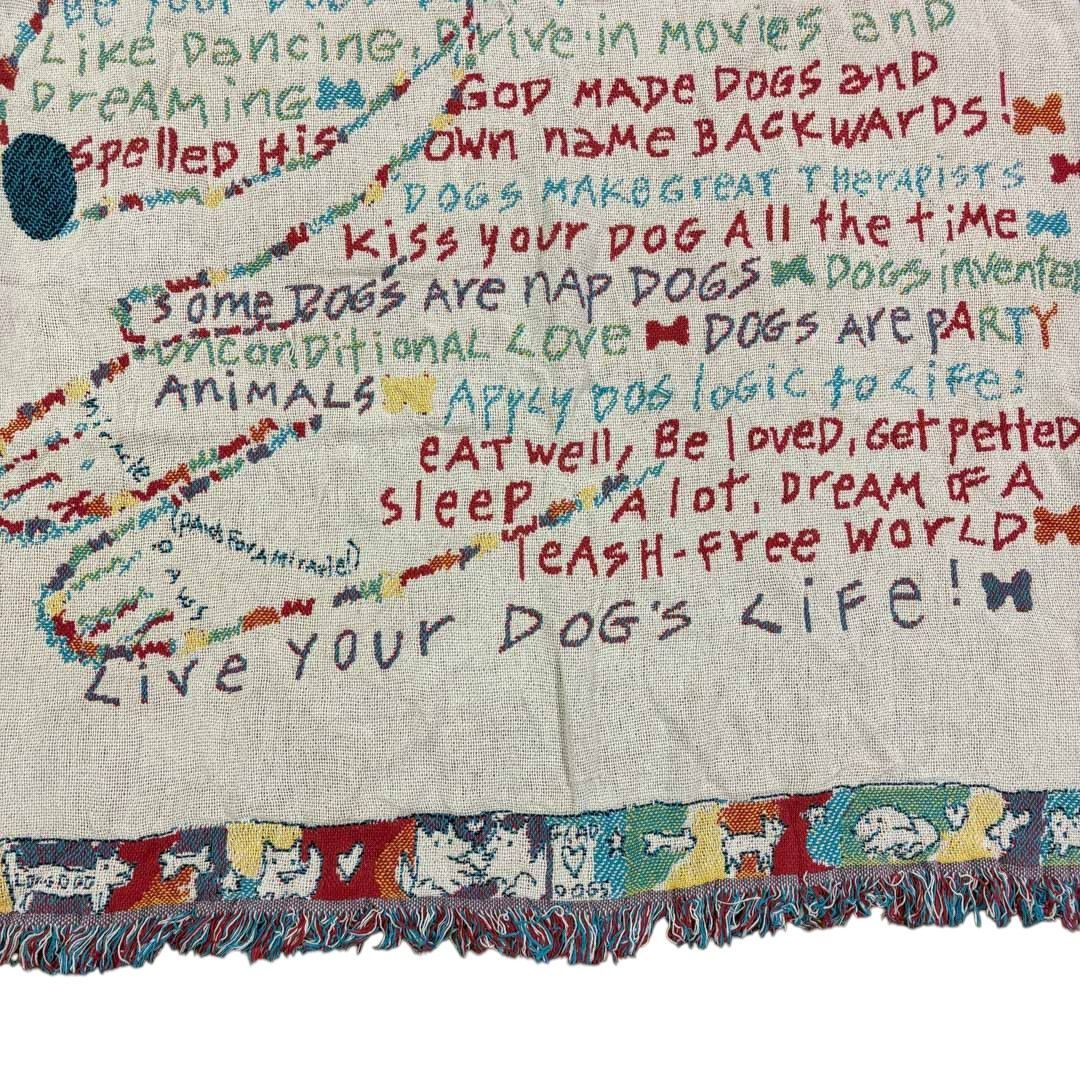 Be your Dog's
Like Dancing, Drive-in movies and
DreAming
GOD MADe DOGS and
spelleD His own name BACKWARDS!
DOGS MAKe GreAT THerapisTs
Kiss your DOG All the tiMe
some DOGS Are nAp DOGS DOGS invented
unconDitionAL LOVe DOGS Are pARTY
AniMALS Apply DOG logic to Life:
eAT well, Be loveD, Get petteD
sleep A lot, DreAM oF A
leAsH-free worLD
(pAws For A MirAcle!)
pAws
Live your DOG's LiFe!
DOG
DOGS